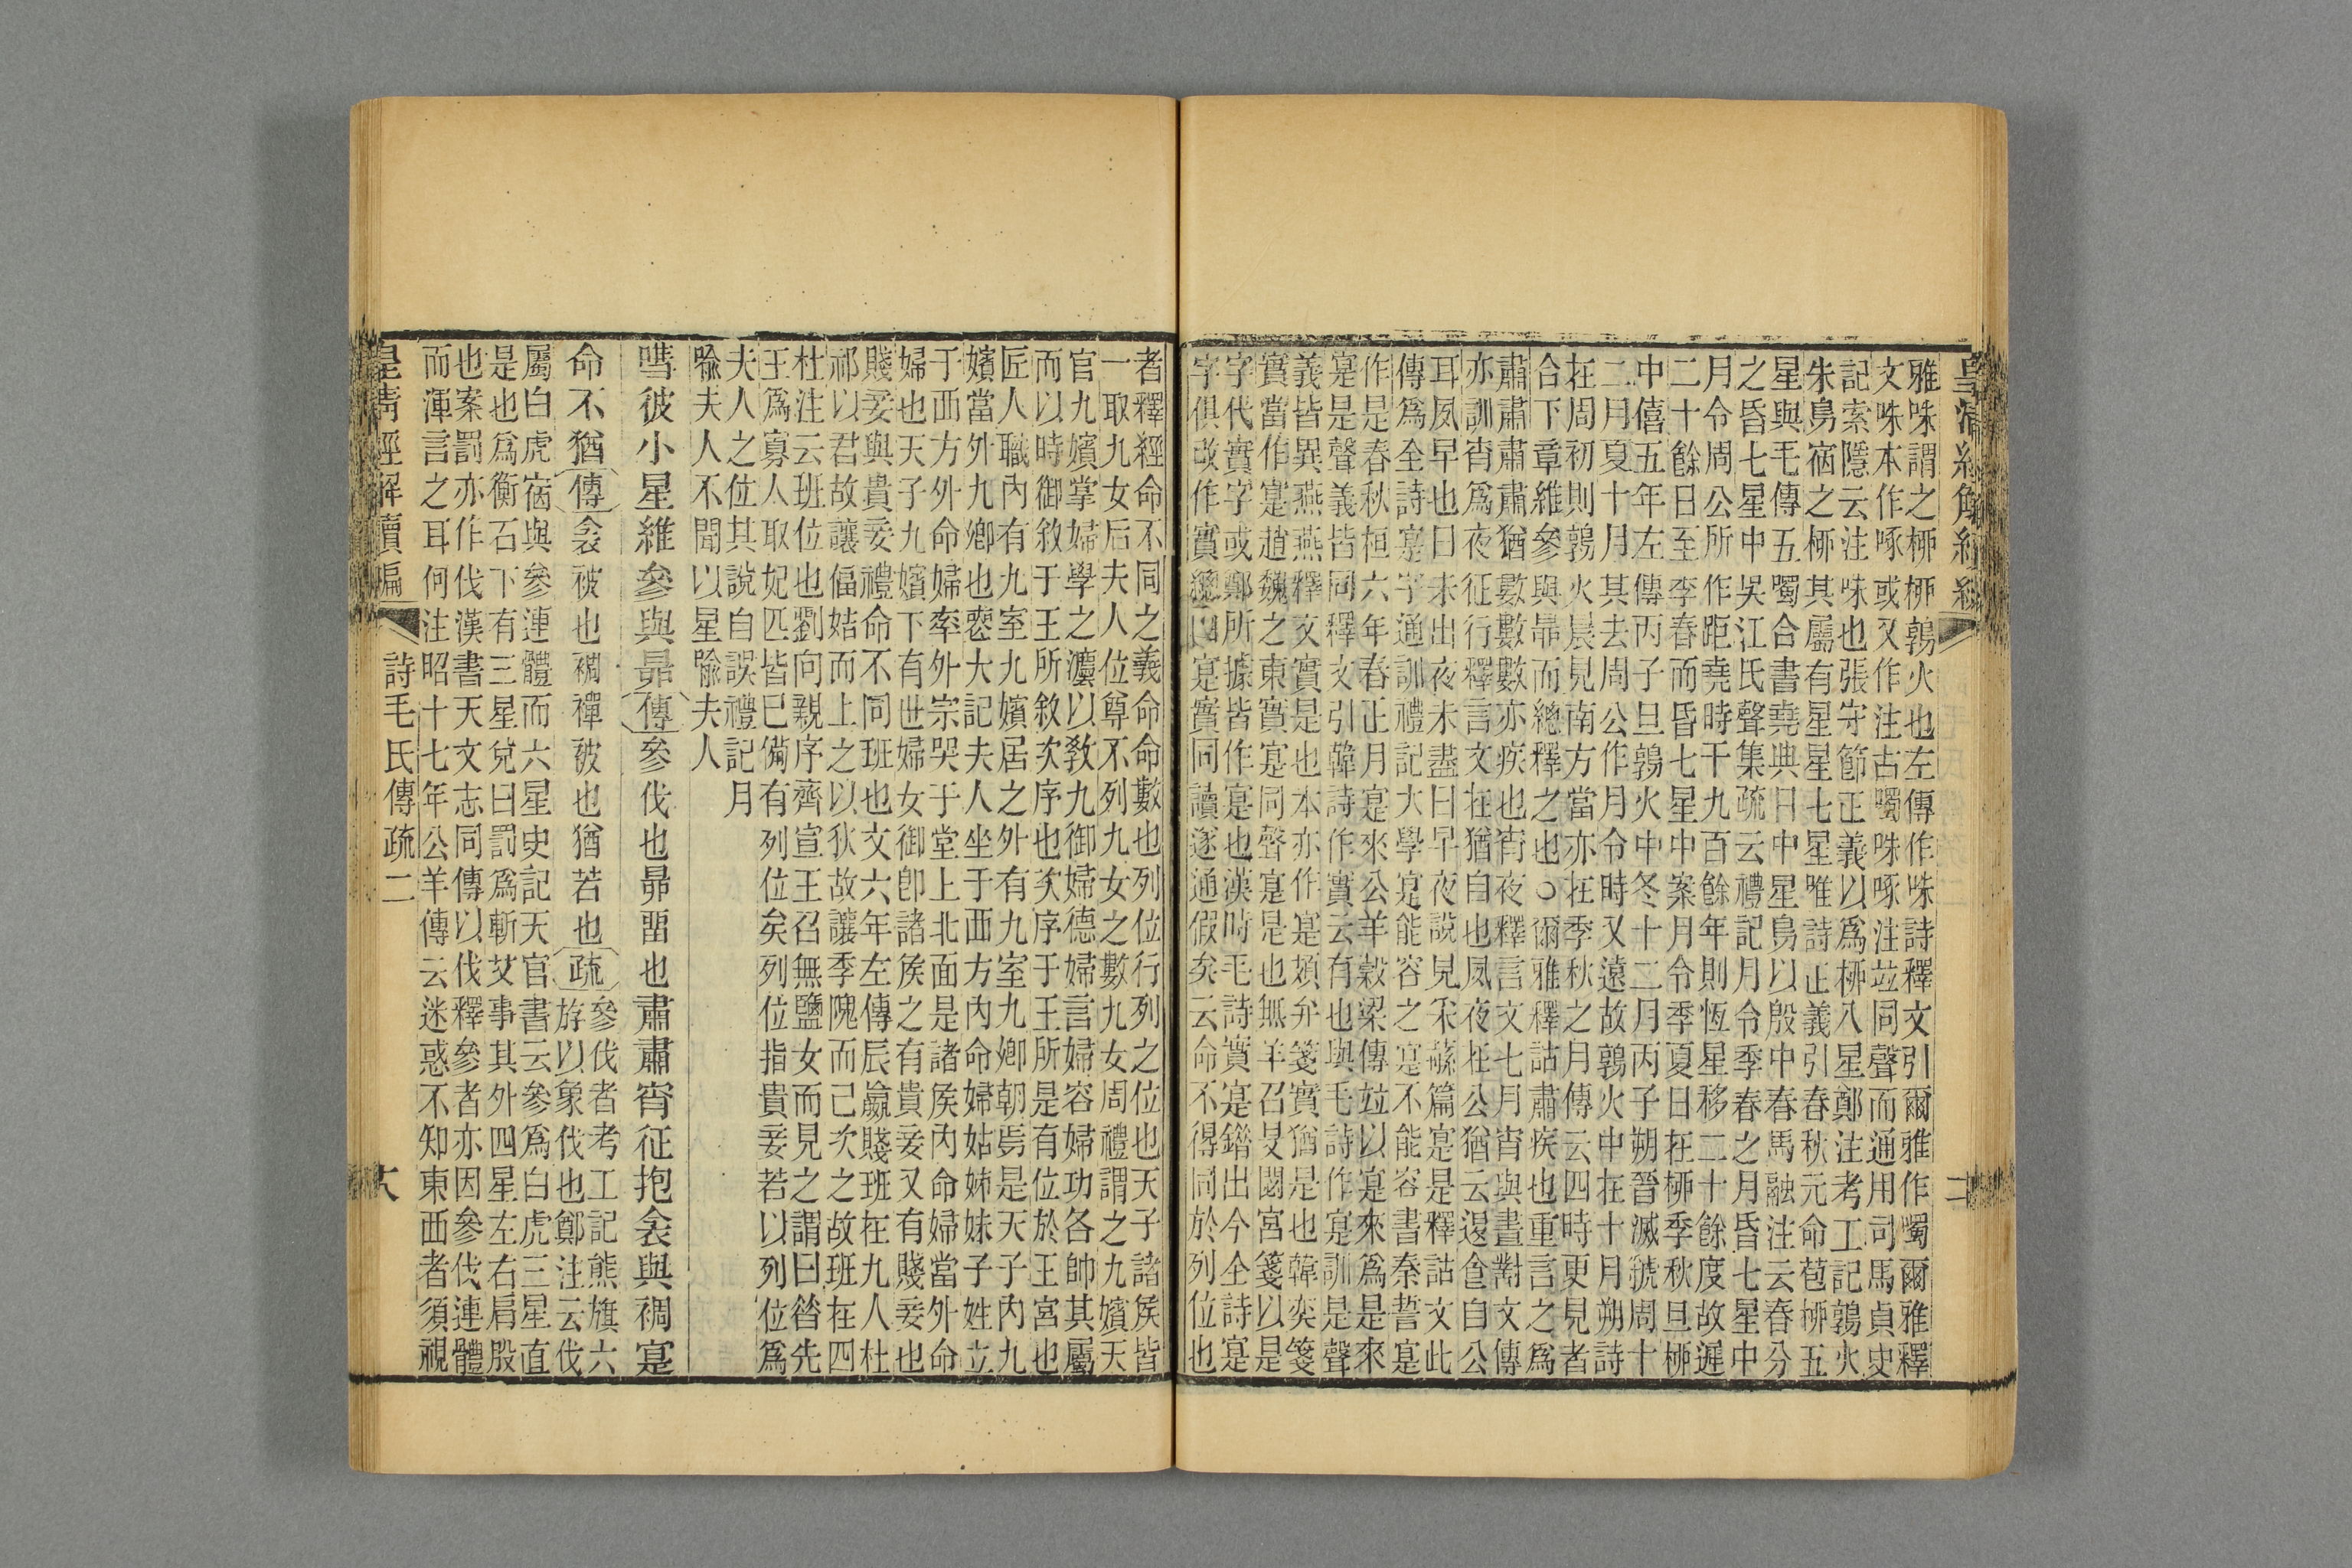 皇清經解續編
雅咮謂之柳柳鶉火也左傳作咮詩釋文引爾雅作噣爾雅釋
文咮本作啄或又作注古噣咮啄注竝同聲而通用司馬貞史
記索隱云注咮也張守節正義以爲柳八星鄭注考工記鶉火
朱鳥宿之柳其屬有星星七星唯詩正義引春秋元命苞柳五
星與毛傳五噣合書堯典日中星鳥以殷中春馬融注云春分
之昏七星中吳江氏聲集疏云禮記月令季春之月昏七星中
月令周公所作距堯時千九百餘年則恆星移二十餘度故遲
二十餘日至季春而昏七星中案月令季夏日在柳季秋旦柳
中僖五年左傳丙子旦鶉火中冬十二月丙子朔晉滅虢周十
二月夏十月其去周公作月令時又遠故鶉火中在十月朔詩
在周初則鶉火晨見南方當亦在季秋之月傳云四時更見者
合下章維參與昴而總釋之也○爾雅釋詁肅疾也重言之爲
肅肅肅肅猶數數數數亦疾也宵夜釋言文七月宵與晝對文傳
亦訓宵爲夜征行釋言文在猶自也夙夜在公猶云退食自公
耳夙早也日未出夜未盡曰早夜說見采蘩篇寔是釋詁文此
傳爲全詩寔字通訓禮記大學寔能容之寔不能容書秦誓寔
作是春秋桓六年春正月寔來公羊穀梁傳竝以寔來爲是來
寔是聲義皆同釋文引韓詩作實云有也與毛詩作寔訓是聲
義皆異燕燕釋文實是也本亦作寔頍弁箋實猶是也韓奕箋
實當作寔趙魏之東實寔同聲寔是也無羊召旻閟宮箋以是
字代實字或鄭所據皆作寔也漢時毛詩實寔錯出今全詩寔
字俱改作實總因寔實同讀遂通假矣云命不得同於列位也
者釋經命不同之義命命數也列位行列之位也天子諸侯皆
一取九女后夫人位尊不列九女之數九女周禮謂之九嬪天
官九嬪掌婦學之灋以敎九御婦德婦言婦容婦功各帥其屬
而以時御敘于王所敘次序也次序于王所是有位於王宮也
匠人職內有九室九嬪居之外有九室九卿朝焉是天子內九
嬪當外九卿也喪大記夫人坐于西方內命婦姑姊妹子姓立
于西方外命婦率外宗哭于堂上北面是諸侯內命婦當外命
婦也天子九嬪下有世婦女御卽諸侯之有貴妾又有賤妾也
賤妾與貴妾禮命不同班也文六年左傳辰嬴賤班在九人杜
祁以君故讓偪姞而上之以狄故讓季隗而己次之故班在四
杜注云班位也劉向新序齊宣王召無鹽女而見之謂曰昝先
王爲寡人取妃匹皆已備有列位矣列位指貴妾若以列位爲
夫人之位其說自誤禮記月
喩夫人不聞以星喩夫人
嘒彼小星維參與昴傳參伐也昴畱也肅肅宵征抱衾與裯寔
命不猶傳衾被也裯襌被也猶若也疏參伐者考工記熊旗六
斿以象伐也鄭注云伐
屬白虎宿與參連體而六星史記天官書云參爲白虎三星直
是也爲衡石下有三星兌曰罰爲斬艾事其外四星左右肩股
也案罰亦作伐漢書天文志同傳以伐釋參者亦因參伐連體
而渾言之耳何注昭十七年公羊傳云迷惑不知東西者須視
皇清經解續編 詩毛氏傳疏二 六